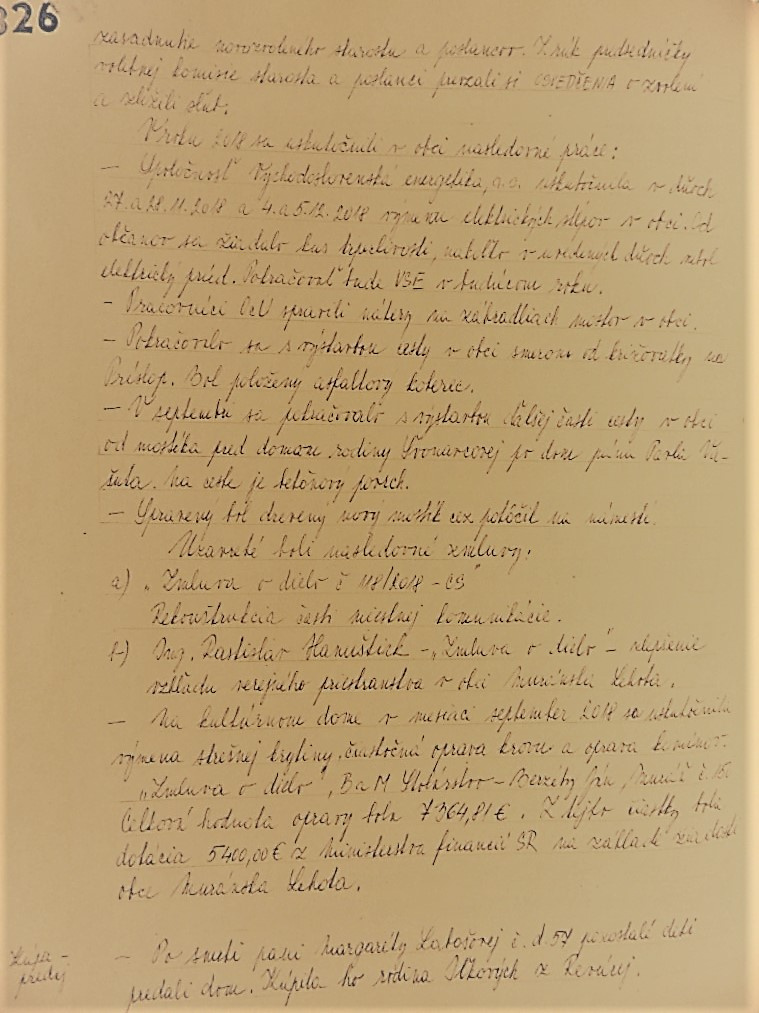 326
zasadnutie novozvoleného starostu a poslancov. Z rúk predsedníčky
volebnej komisie starosta a poslanci prevzali si OSVEDČENIA o zvolení
a zložili sľub.
V roku 2018 sa uskutočnili v obci nasledovné práce:
— Spoločnosť Východoslovenská energetika, a.s. uskutočnila v dňoch
27. a 28.11.2018 a 4. a 5.12.2018 výmenu elektrických stĺpov v obci. Od
občanov sa žiadalo kus trpezlivosti, nakoľko v uvedených dňoch nebol
elektrický prúd. Pokračovať bude VSE v budúcom roku.
- Pracovníci OcÚ spravili nátery na zábradliach mostov v obci.
- Pokračovalo sa s výstavbou cesty v obci smerom od križovatky na
Príslop. Bol položený asfaltový koberec.
- V septembri sa pokračovalo s výstavbou ďalšej časti cesty v obci
od mostíka pred domom rodiny po dom pána Pavla
Na ceste je betónový povrch.
— Spravený bol drevený nový mostík cez potôčik na námestí.
Uzavreté boli nasledovné zmluvy:
a) „Zmluva o dielo č 118/2018 - ČS"
Rekonštrukcia časti miestnej komunikácie.
b) Ing. Rastislav Hanuštiak - „Zmluva o dielo" - zlepšenie
vzhľadu verejného priestranstva v obci Muránska Lehota.
- Na kultúrnom dome v mesiaci september 2018 sa uskutočnila
výmena strešnej krytiny, čiastočná oprava krovu a oprava komínov.
„Zmluva o dielo", B a M Stolárstvo - Ján Muráň č.
Celková hodnota opravy bola 7364,81 €. Z tejto čiastky bola
dotácia 5400,00 € z Ministerstva financií SR na základe žiadosti
obce Muránska Lehota.
Kúpa -
predaj
- Po smrti pani Margaréty Latošovej č. d. 57 pozostalé deti
predali dom. Kúpila ho rodina Iľkových z Revúcej.